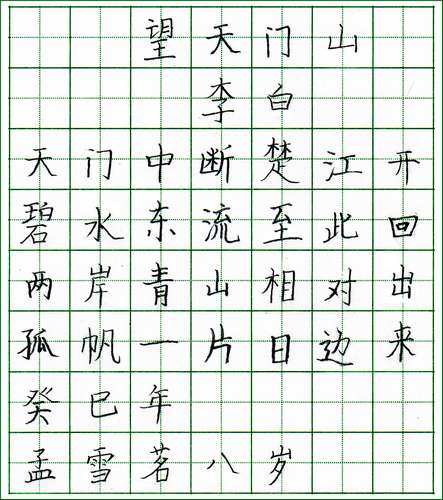 望天门山
李白
天门中断楚江开
碧水东流至此回
两岸青山相对出
孤帆一片日边来
癸巳年
孟雪茗八岁